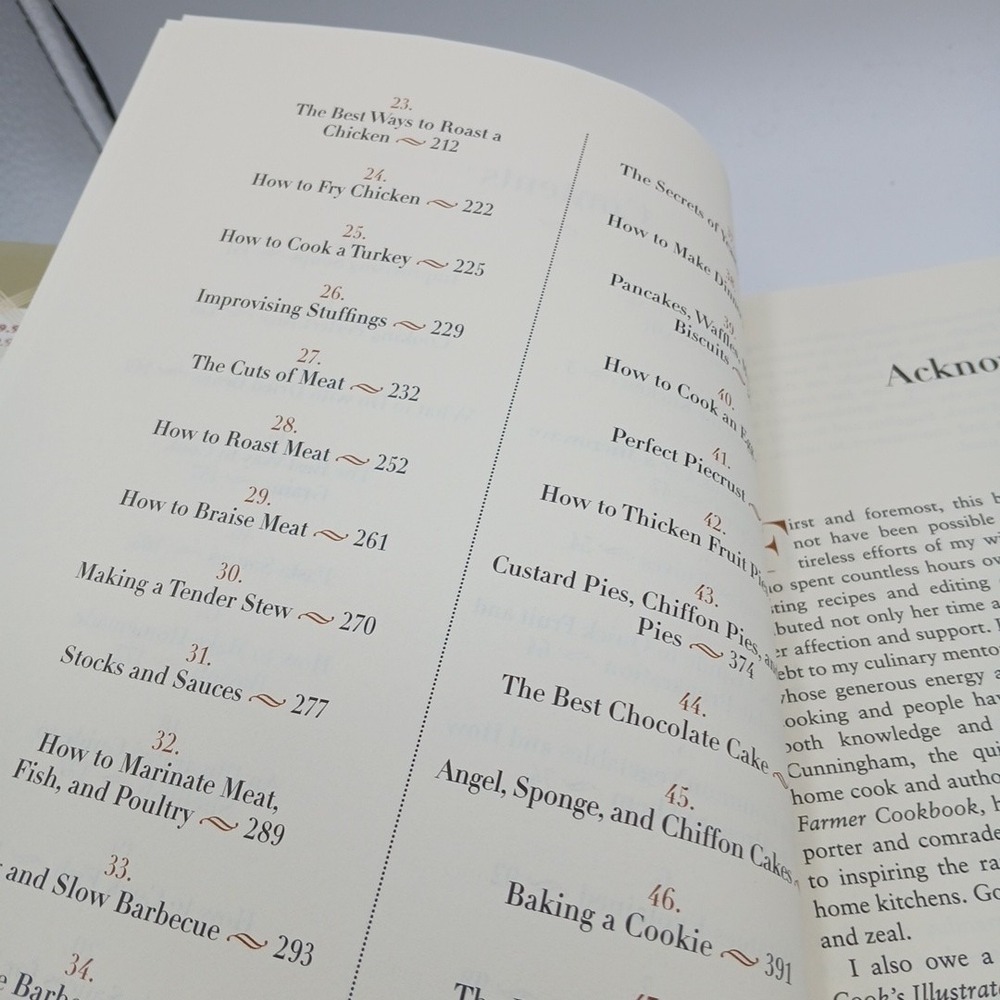 23.
The Best Ways to Roast a
Chicken 212
24.
How to Fry Chicken 222
25.
How to Cook a Turkey 225
26.
Improvising Stuffings 229
27.
The Cuts of Meat 232
28.
How to Roast Meat 252
29.
How to Braise Meat 261
30.
Making a Tender Stew 270
31.
Stocks and Sauces 277
32.
How to Marinate Meat,
Fish, and Poultry 289
33.
and Slow Barbecue 293
34.
The Secrets of
How to Make
39.
Pancakes, Waffles,
Biscuits
40.
How to Cook an
41.
Perfect Piecrust
42.
How to Thicken Fruit
43.
Custard Pies, Chiffon Pies,
Pies 374
44.
The Best Chocolate Cake
45.
Angel, Sponge, and Chiffon Cakes
46.
Baking a Cookie 391
First and foremost, this
not have been possible
tireless efforts of my
spent countless hours
recipes and editing
not only her time
affection and support.
to my culinary
generous energy
and people
knowledge and
Cunningham, the
home cook and
Farmer Cookbook,
porter and
to inspiring the
home kitchens.
and zeal.
I also owe a
Cook's